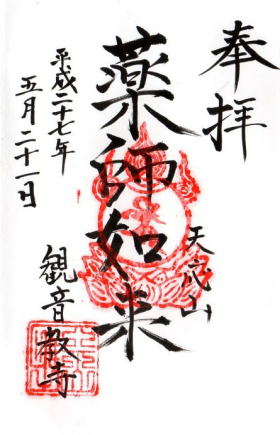 奉拝
薬師如来
天代山
平成二十七年
五月二十一日
観音教寺